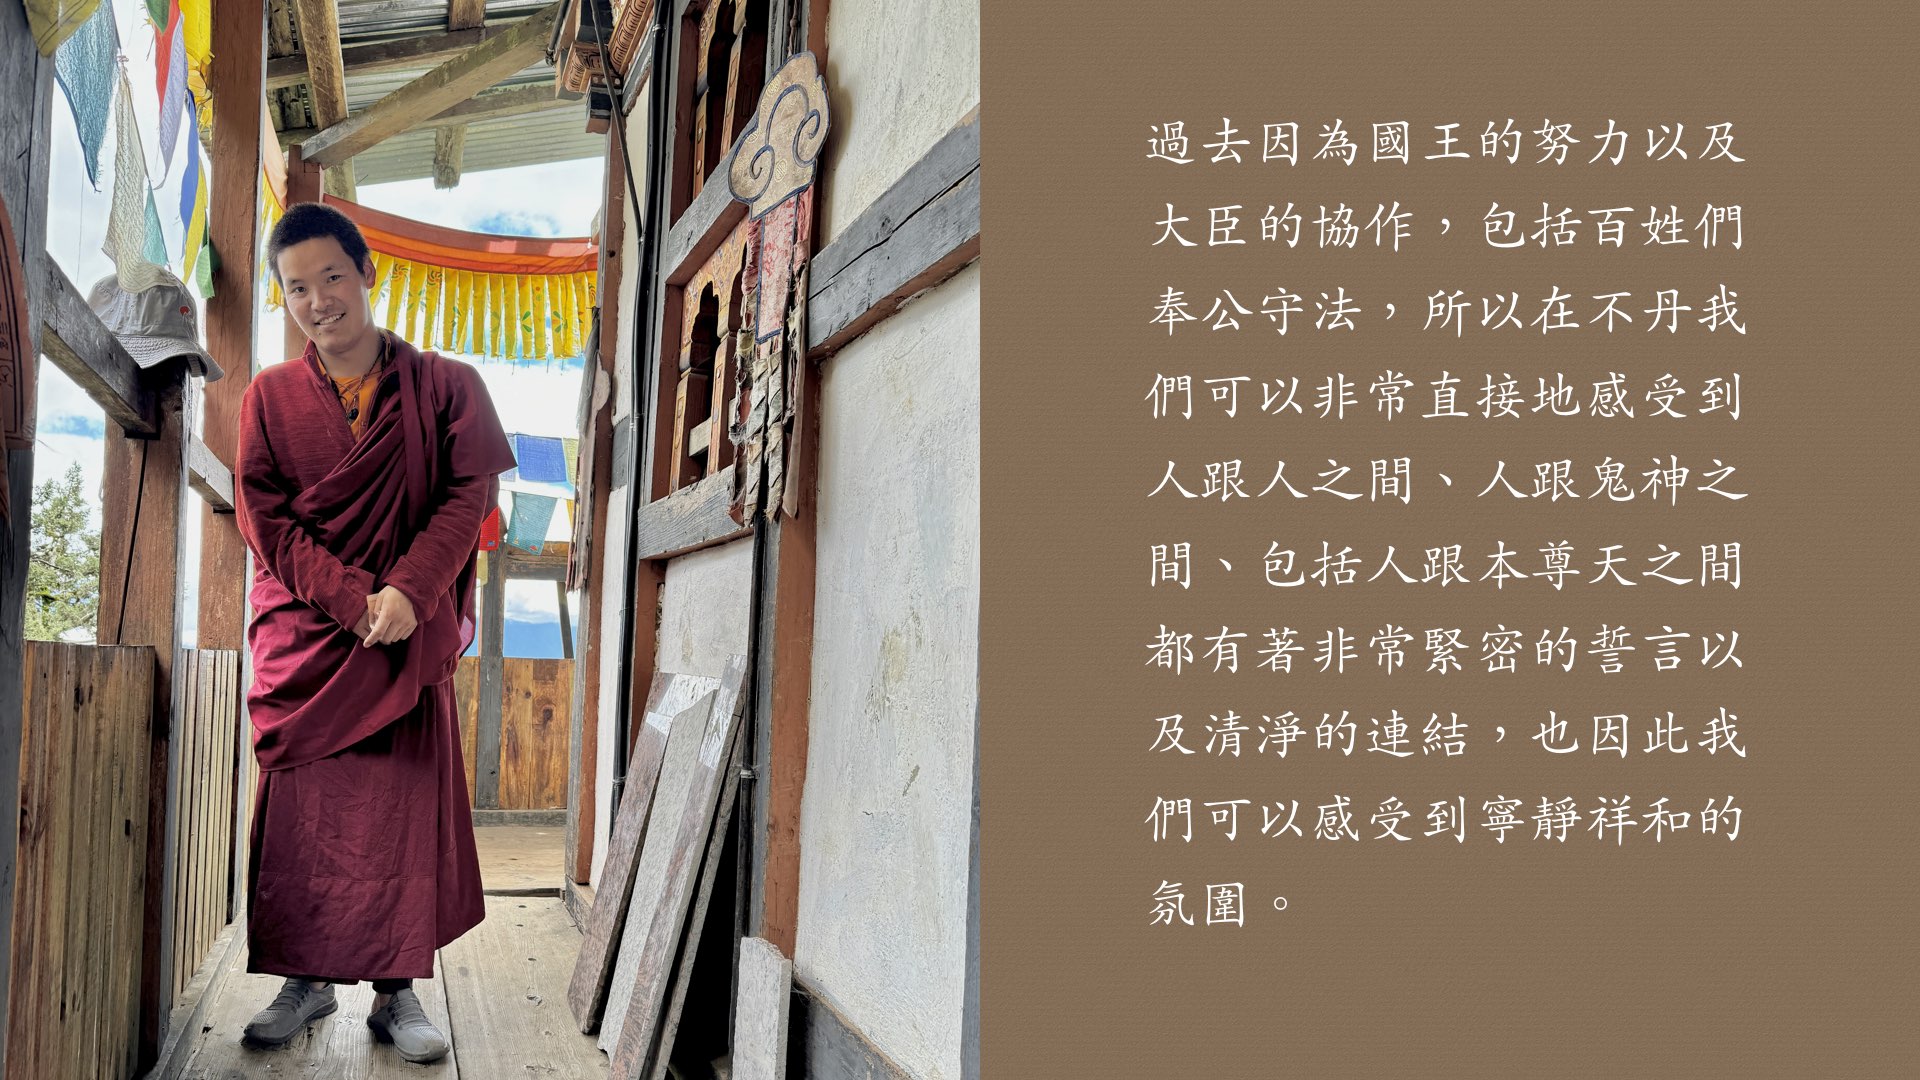 過去因為國王的努力以及
大臣的協作，包括百姓們
奉公守法，所以在不丹我
們可以非常直接地感受到
人跟人之間、人跟鬼神之
間、包括人跟本尊天之間
都有著非常緊密的誓言以
及清淨的連結，也因此我
們可以感受到寧靜祥和的
氛圍。